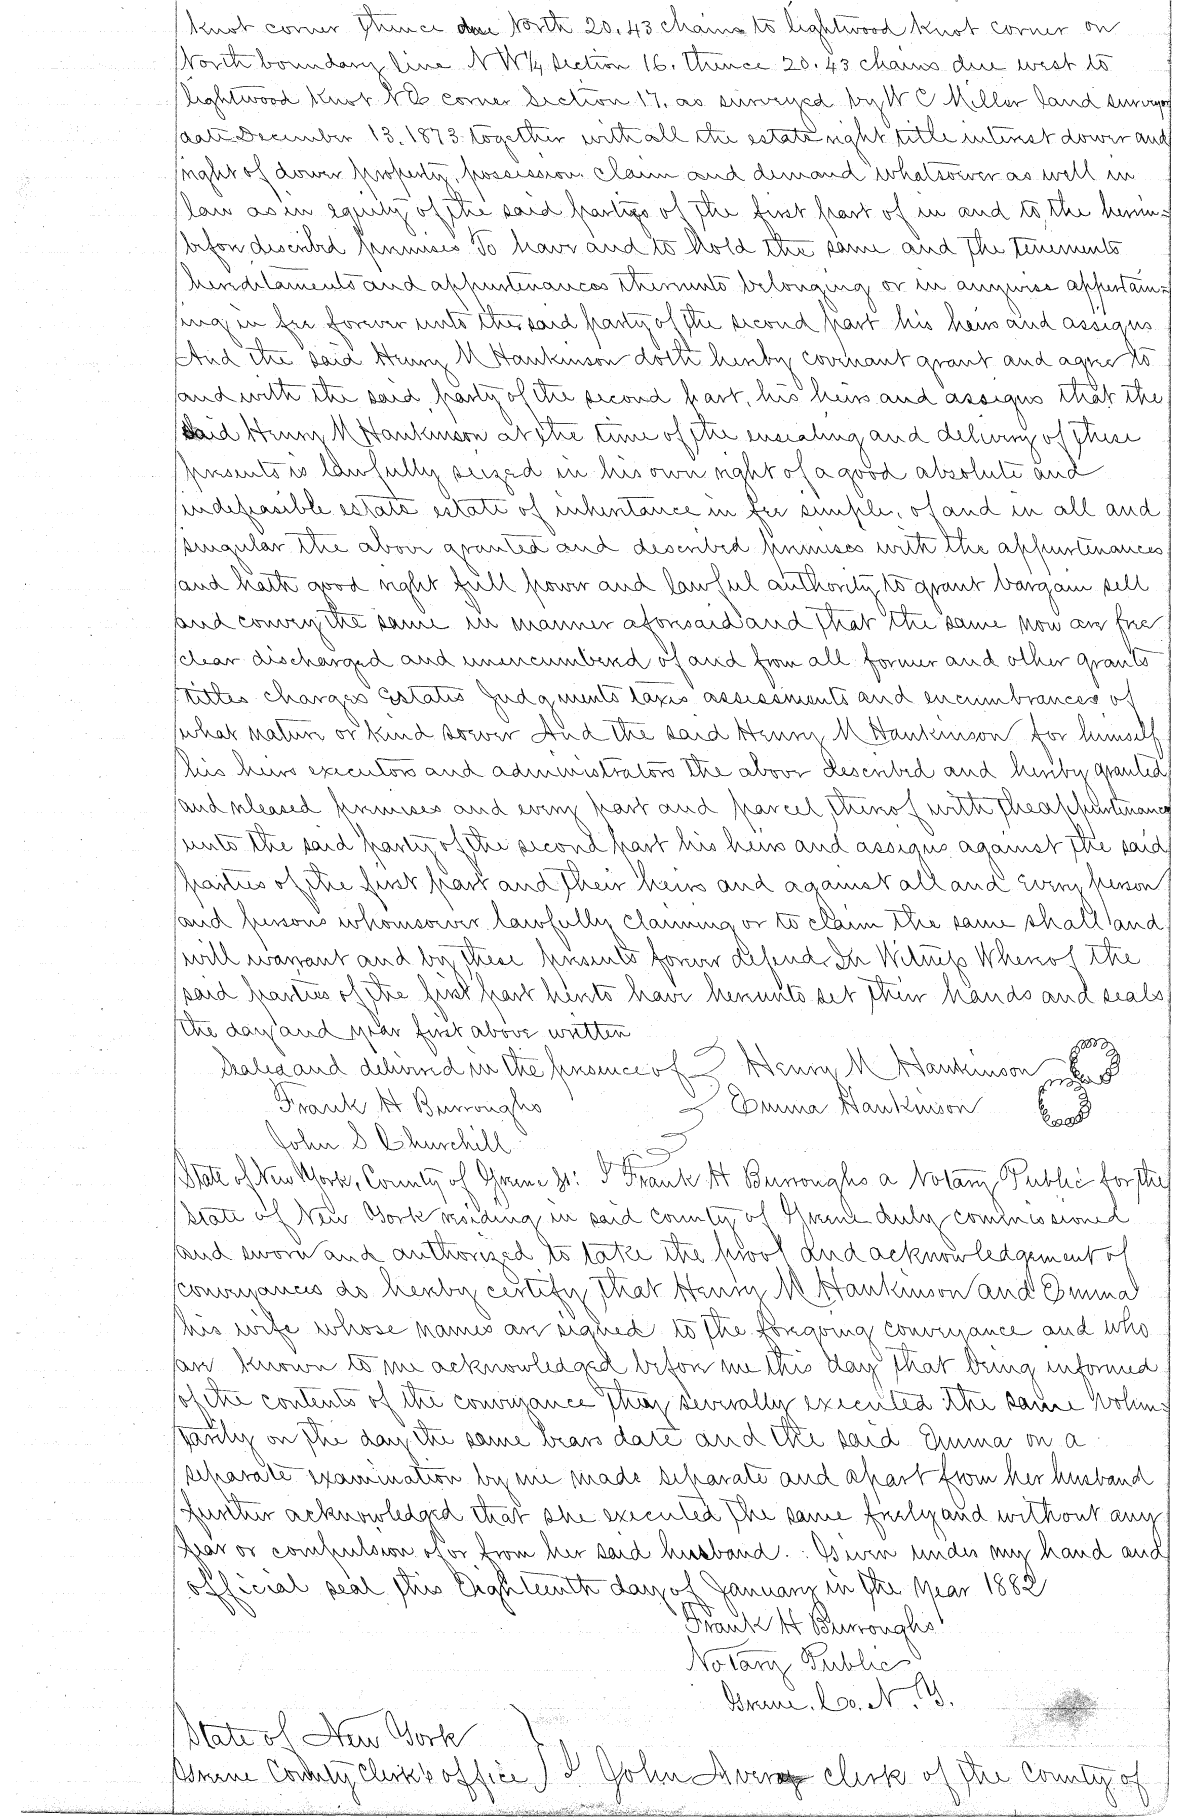 Knot corner thence due North 20.43 chains to lightwood knot corner on
North boundary line N W ¼ Section 16. thence 20.43 chains due west to
lightwood Knot N E corner Section 17. as surveyed by W C Miller land surveyor
date December 13. 1873 together with all the estate right title interest dower and
right of dower property, possession. claim and demand whatsoever as well in
law as in equity of the said parties of the first part of in and to, the herein=
before described premises To have and to hold the same and the tenements
hereditaments and appurtenances thereunto belonging or in anywise appertain=
ing in fee forever unto the said party of the second part his heirs and assigns
And the said Henry M Hankinson doth hereby covenant grant and agree to
and with the said party of the second part, his heirs and assigns that the
Said Henry M Hankinson at the time of the ensealing and delivery of these
presents is lawfully seized in his own right of a good absolute and
indefeasible estate estate of inheritance in fee simple, of and in all and
singular the above granted and described premises with the appurtenances
and hath good right full power and lawful authority to grant bargain sell
and convey the same in manner aforesaid and that the same now are free
clear discharged and unencumbered of and from all former and other grants
titles charges Estates Judgments taxes assessments and encumbrances of
what nature or kind soever And the said Henry M Hankinson for himself
his heirs executors and administrators the above described and hereby granted
and released premises and every part and parcel thereof with the appurtenances
unto the said party of the second part his heirs and assigns against the said
parties of the first part and their heirs and against all and Every person
and persons whomsoever lawfully claiming or to claim the same shall and
will warrant and by these presents forever defend. In Witness Whereof the
said parties of the first part hereto have hereunto set their hands and seals
the day and year first above written
Sealed and delivered in the presence of } Henry M Hankinson
Frank H Burroughs } Emma Hankinson
John S Churchill }
State of New York, County of Greene ss: I Frank H Burroughs a Notary Public for the
State of New York residing in said county of Greene duly commissioned
and sworn and authorized to take the proof and acknowledgement of
conveyances do hereby certify that Henry M Hankinson and Emma
his wife whose names are signed to the foregoing conveyance and who
are known to me acknowledged before me this day that being informed
of the contents of the conveyance they severally executed the same volun=
tarily on the day the same bears date and the said Emma on a
separate examination by me made separate and apart from her husband
further acknowledged that she executed the same freely and without any
fear or compulsion of or from her said husband. Given under my hand and
official seal this Eighteenth day of January in the year 1882
Frank H Burroughs
Notary Public
Greene. Co. N. Y.
State of New York }
Greene County Clerk's office } I John Avery clerk of the County of